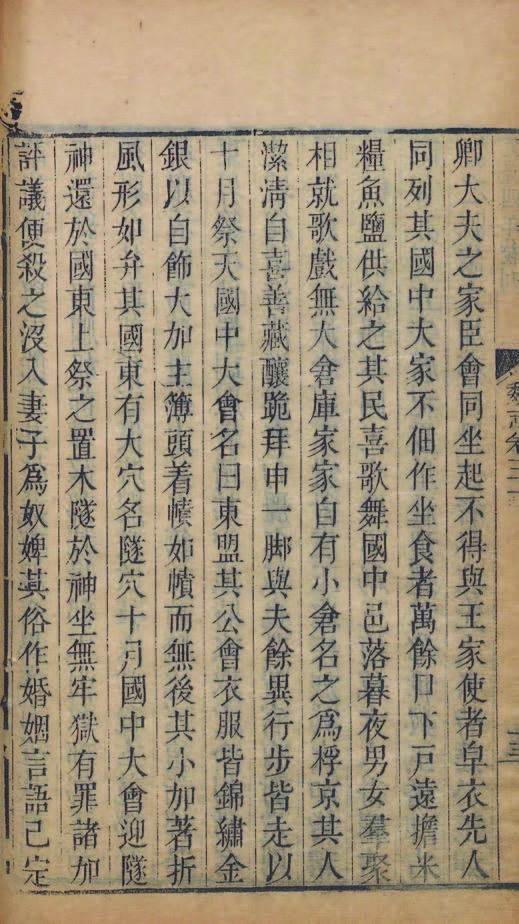 卿大夫之家臣會同坐起不得與王家使者皁衣先人
同列其國中大家不佃作坐食者萬餘口下戸遠擔米
糧魚鹽供給之其民喜歌舞國中邑落暮夜男女羣聚
相就歌戲無大倉庫家家自有小倉名之爲桴京其人
潔淸自喜善藏釀跪拜申一脚與夫餘異行步皆走以
十月祭天國中大會名曰東盟其公會衣服皆錦繡金
銀以自飾大加主簿頭着幘如幘而無後其小加著折
風形如弁其國東有大穴名隧穴十月國中大會迎隧
神還於國東上祭之置木隧於神坐無牢獄有罪諸加
評議便殺之沒入妻子爲奴婢其俗作婚姻言語已定
魏志卷三